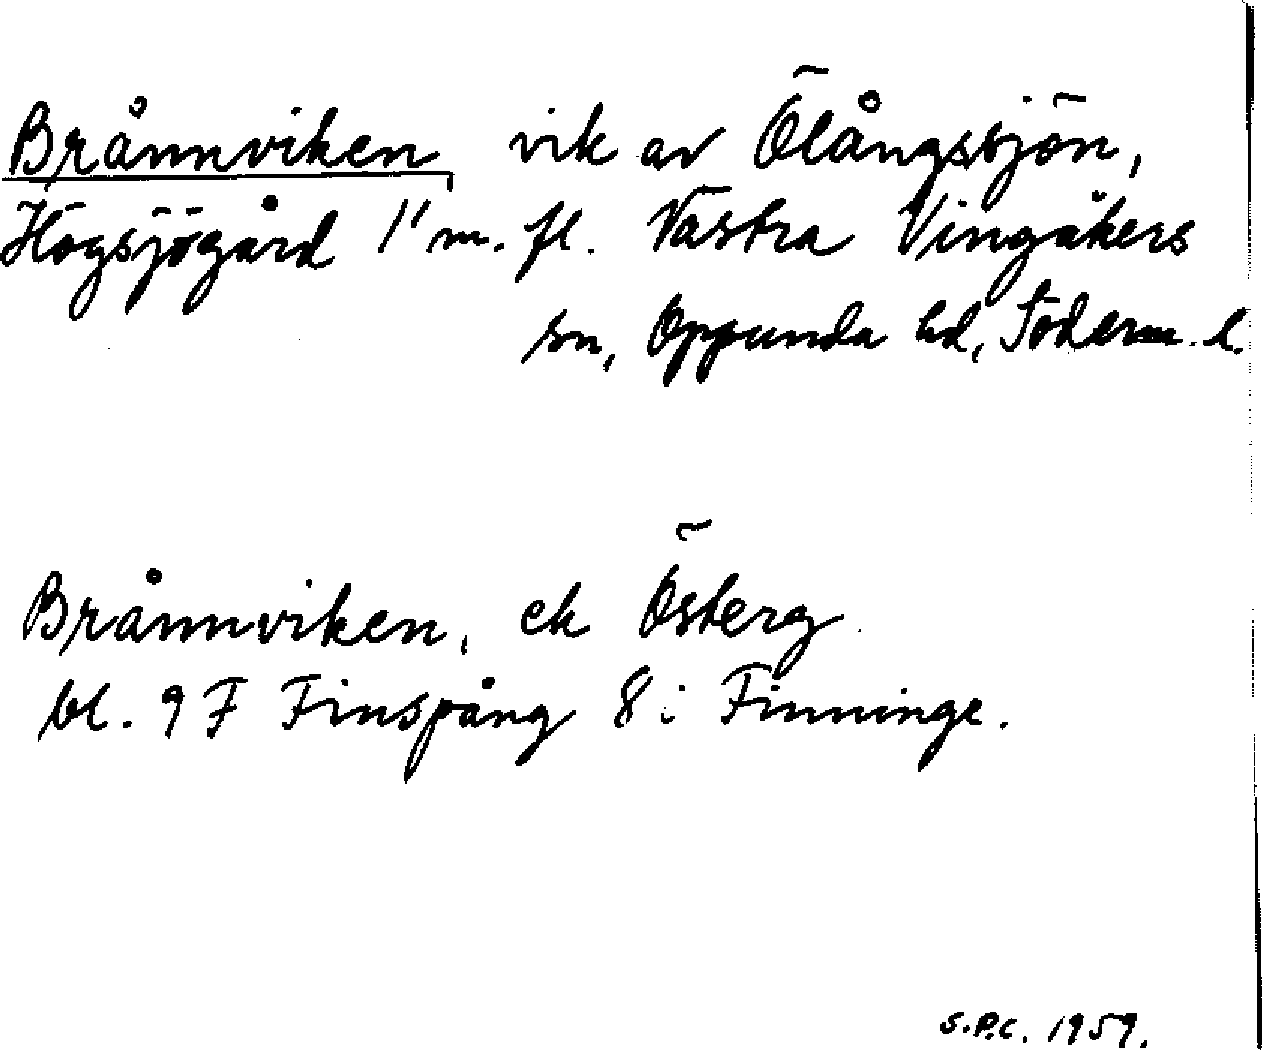 Brånnviken, vik av Ölångssjön,
Högsjögård 1¹ m. fl. Västra Vingåkers
sn, Oppunda hd, Söderm. l.
Brånnviken, ek Österg.
bl. 9 F Finspång 8 i Finninge.
S.P.C. 1959.